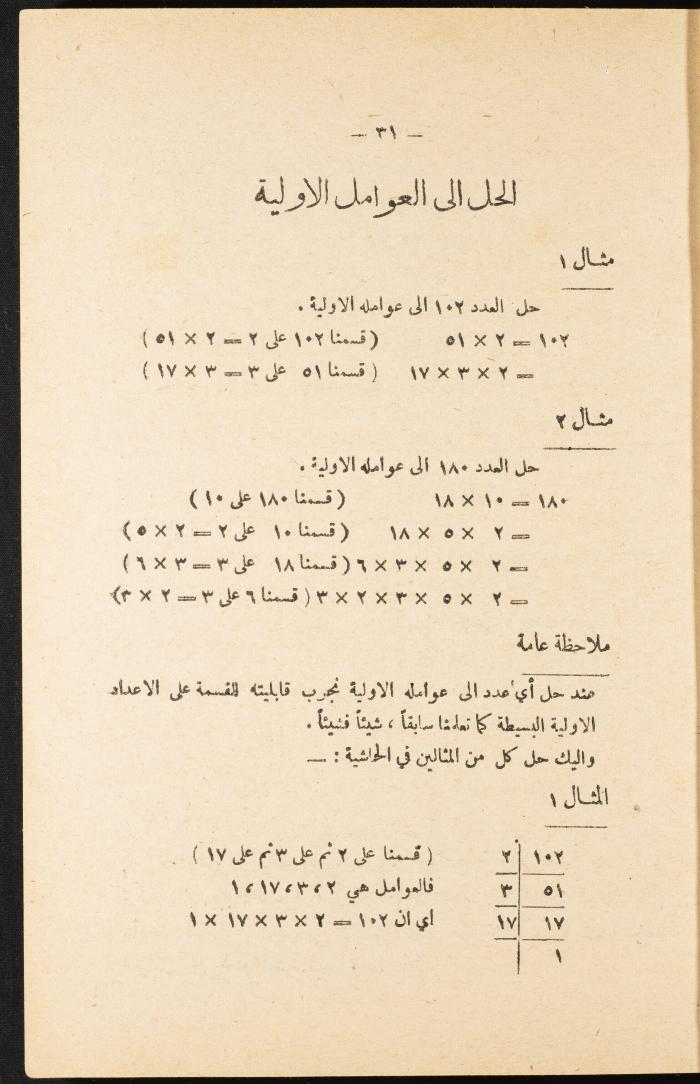 — ٣١ —
الحل الى العوامل الاولية
مثال ١
حل العدد ١٠٢ الى عوامله الاولية .
١٠٢ = ٢ × ٥١ ( قسمنا ١٠٢ على ٢ = ٢ × ٥١ )
= ٢ × ٣ × ١٧ ( قسمنا ٥١ على ٣ = ٣ × ١٧ )
مثال ٢
حل العدد ١٨٠ الى عوامله الاولية .
١٨٠ = ١٠ × ١٨ ( قسمنا ١٨٠ على ١٠ )
= ٢ × ٥ × ١٨ ( قسمنا ١٠ على ٢ = ٢ × ٥ )
= ٢ × ٥ × ٣ × ٦ ( قسمنا ١٨ على ٣ = ٣ × ٦ )
= ٢ × ٥ × ٣ × ٢ × ٣ ( قسمنا ٦ على ٣ = ٢ × ٣ )
ملاحظة عامة
عند حل أي عدد الى عوامله الاولية نجرب قابليته للقسمة على الاعداد
الاولية البسيطة كما تعلمنا سابقاً ، شيئاً فشيئاً .
واليك حل كل من المثالين في الحاشية : —
المثال ١
١٠٢ ٢ ( قسمنا على ٢ ثم على ٣ ثم على ١٧ )
٥١ ٣ فالعوامل هي ٢ ، ٣ ، ١٧ ، ١
١٧ ١٧ اي ان ١٠٢ = ٢ × ٣ × ١٧ × ١
١